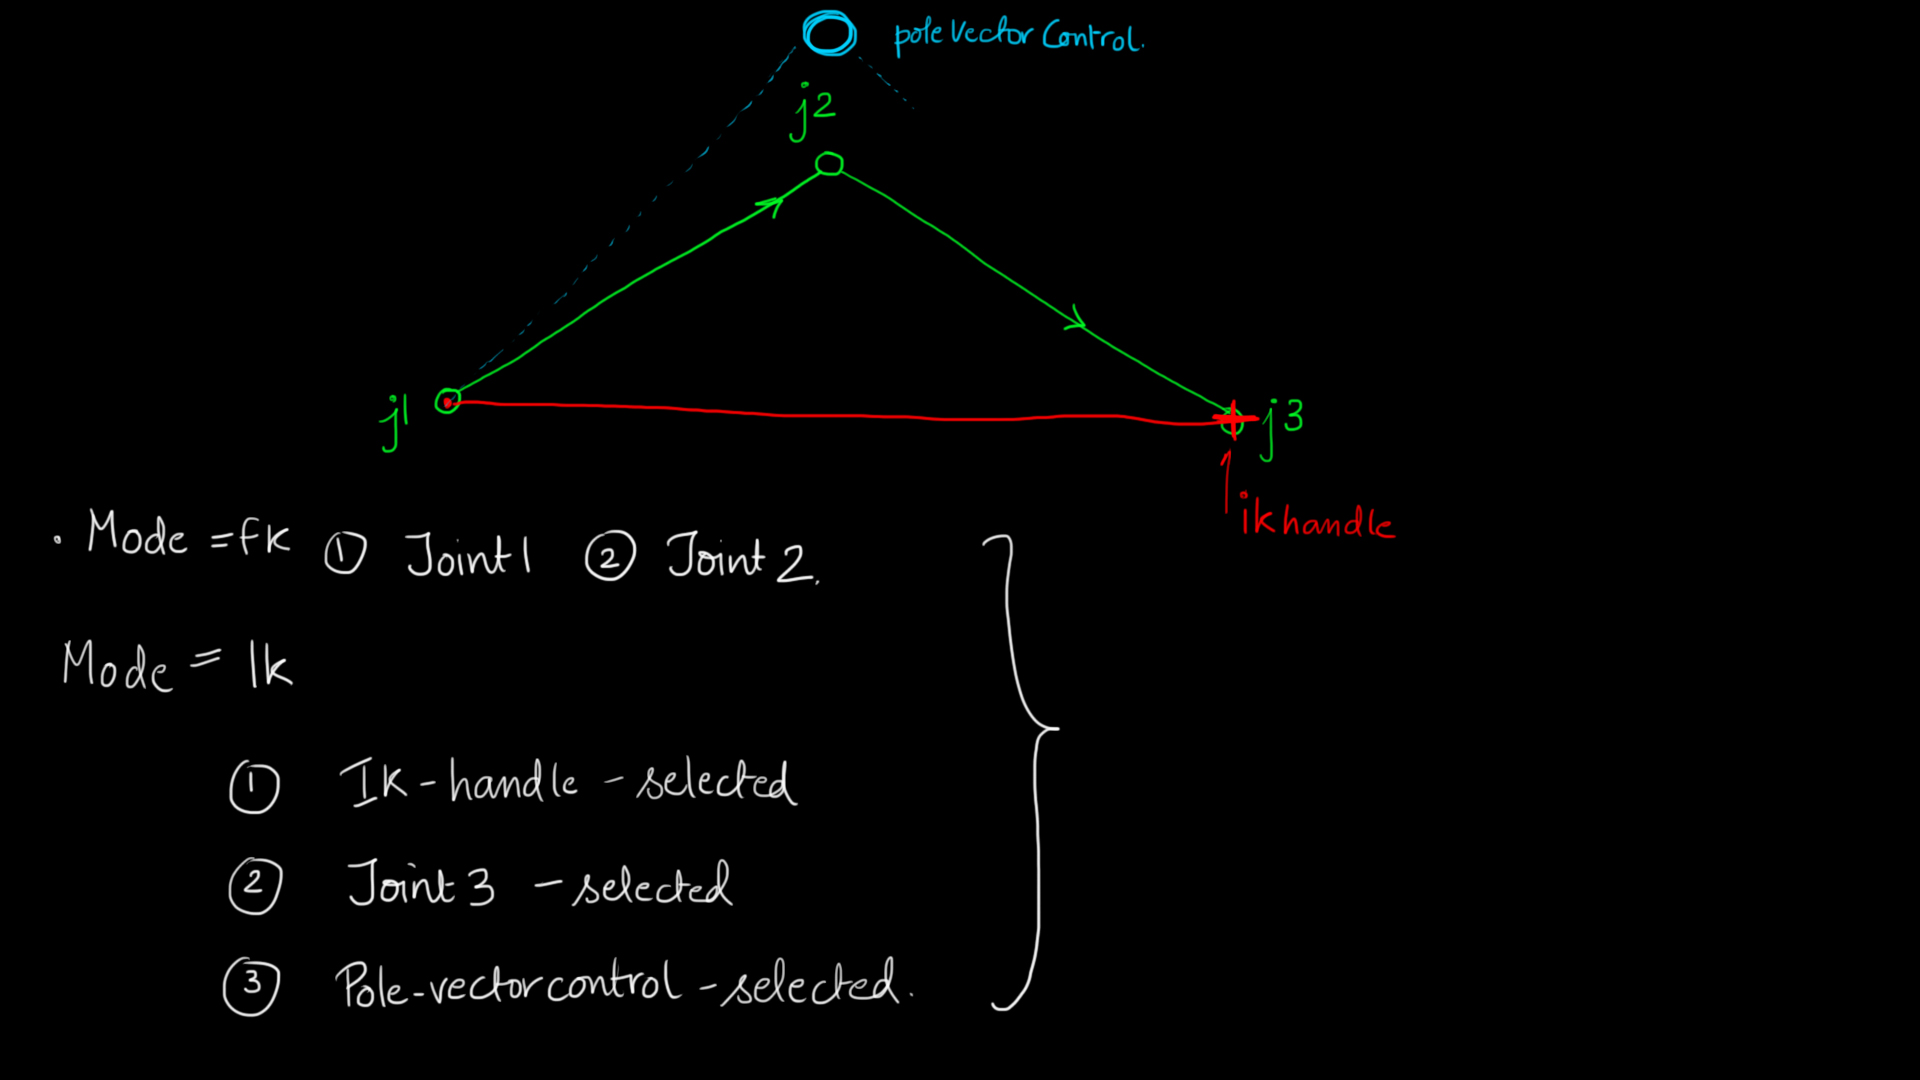 poleVector Control.
j2
j1
j3
ik handle
. Mode = fk ① Joint 1 ② Joint 2.
Mode = Ik
① IK - handle - selected
② Joint 3 - selected
③ Pole-vector control - selected.